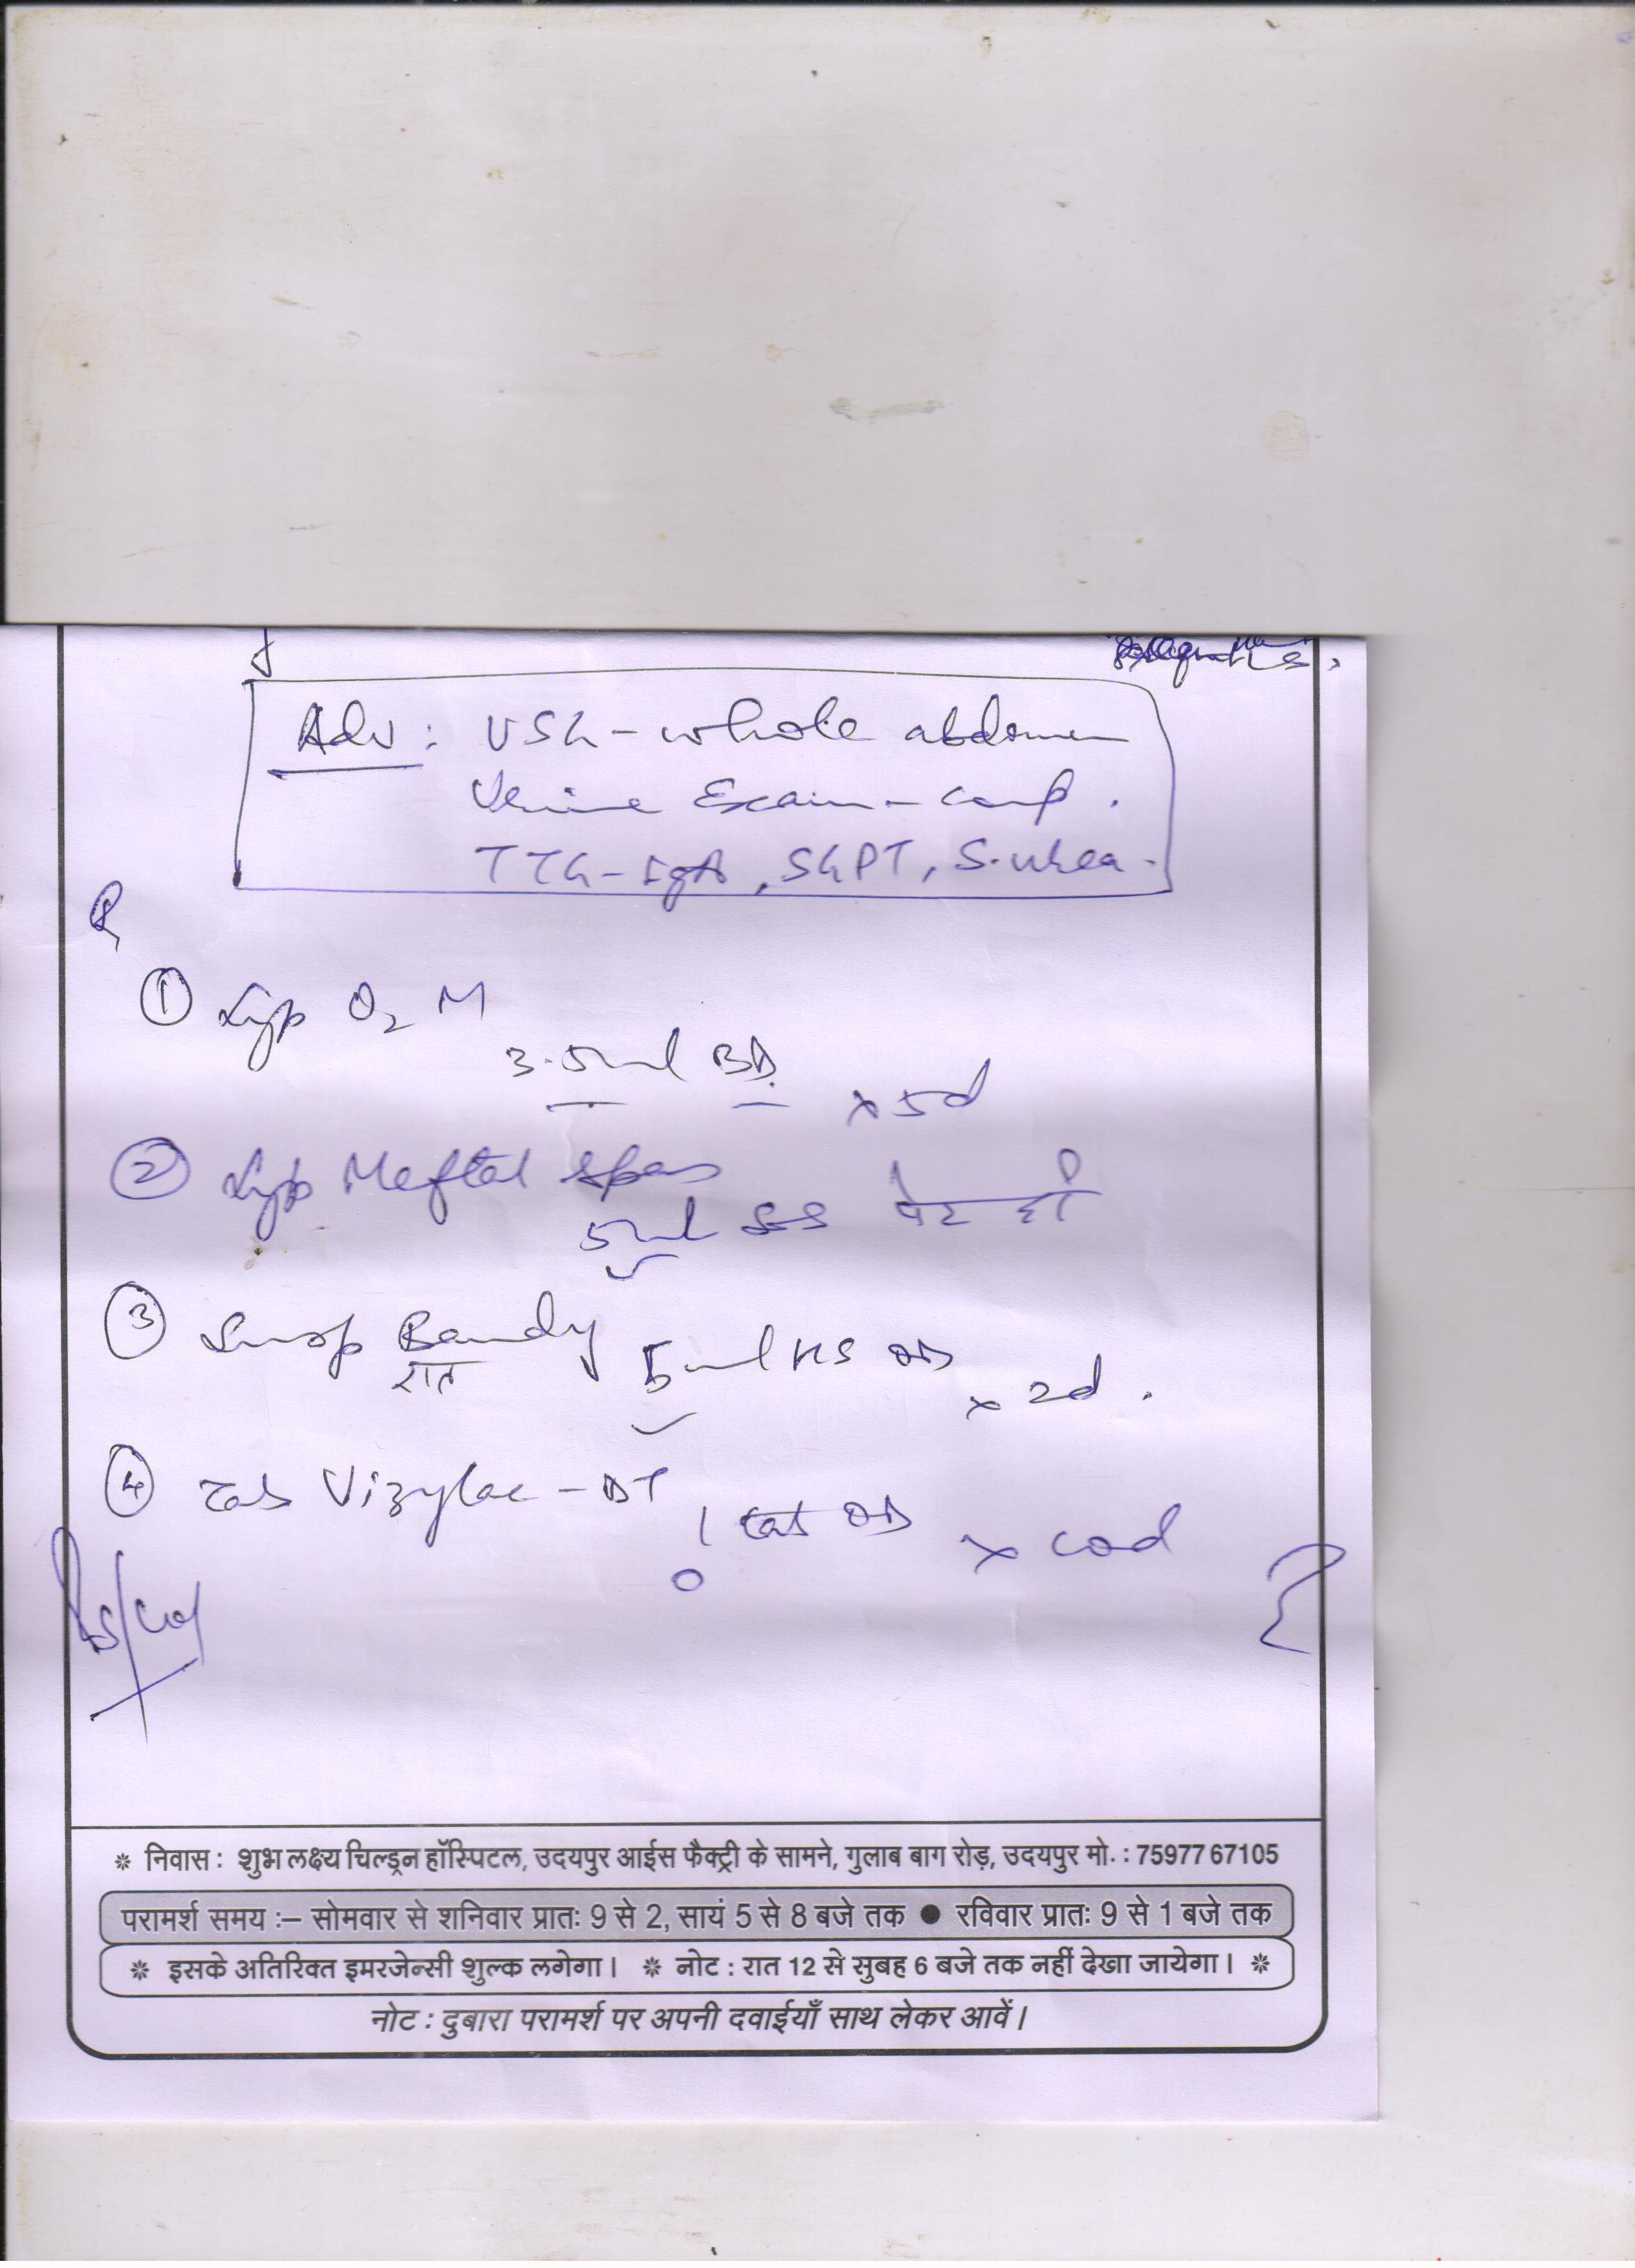 Adv: USG - whole abdomen
Urine Exam - comp.
TTG - IgA, SGPT, S. Urea.
① Syp O2 M
3.5ml BD x 5d
② Syp Meftal Spas
5ml SOS पेट दर्द
③ Susp Bandy 5ml HS OD x 2d.
रात
④ Tab Vizylac - DT
1 tab OD x 10d
* निवास : शुभ लक्ष्य चिल्ड्रन हॉस्पिटल, उदयपुर आईस फैक्ट्री के सामने, गुलाब बाग रोड़, उदयपुर मो. : 75977 67105
परामर्श समय :– सोमवार से शनिवार प्रातः 9 से 2, सायं 5 से 8 बजे तक ● रविवार प्रातः 9 से 1 बजे तक
* इसके अतिरिक्त इमरजेन्सी शुल्क लगेगा। * नोट : रात 12 से सुबह 6 बजे तक नहीं देखा जायेगा। *
नोट : दुबारा परामर्श पर अपनी दवाईयाँ साथ लेकर आवें।